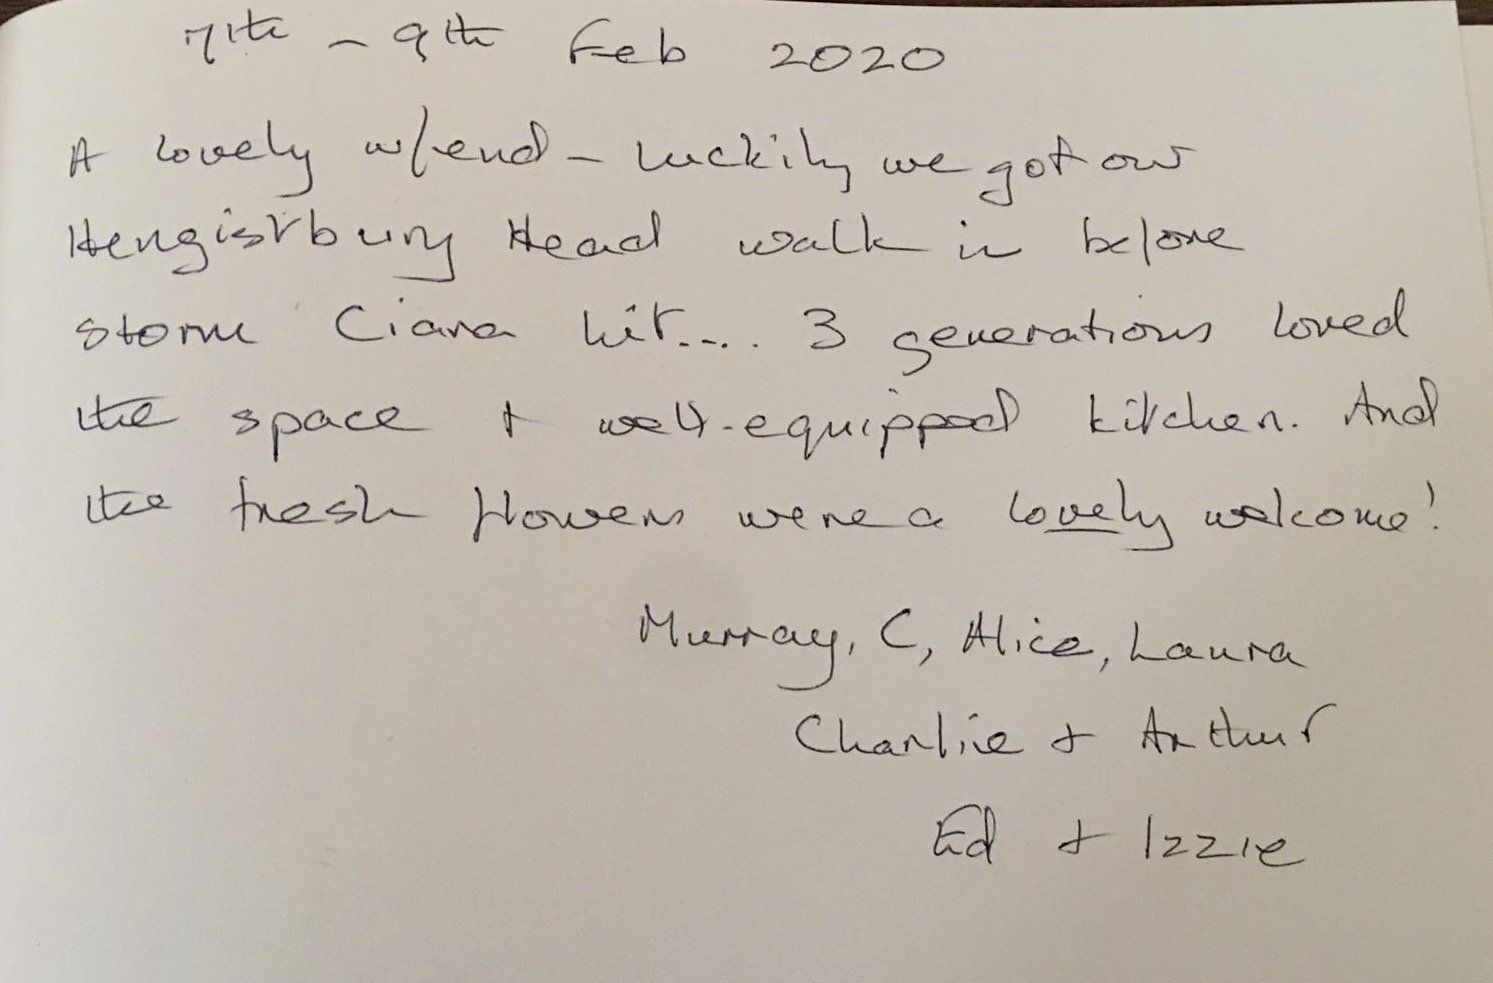 7th - 9th Feb 2020
A lovely w/end - luckily we got our
Hengistbury Head walk in before
storm Ciara hit.... 3 generations loved
the space + well-equipped kitchen. And
the fresh flowers were a lovely welcome!
Murray, C, Alice, Laura
Charlie + Arthur
Ed + Izzie